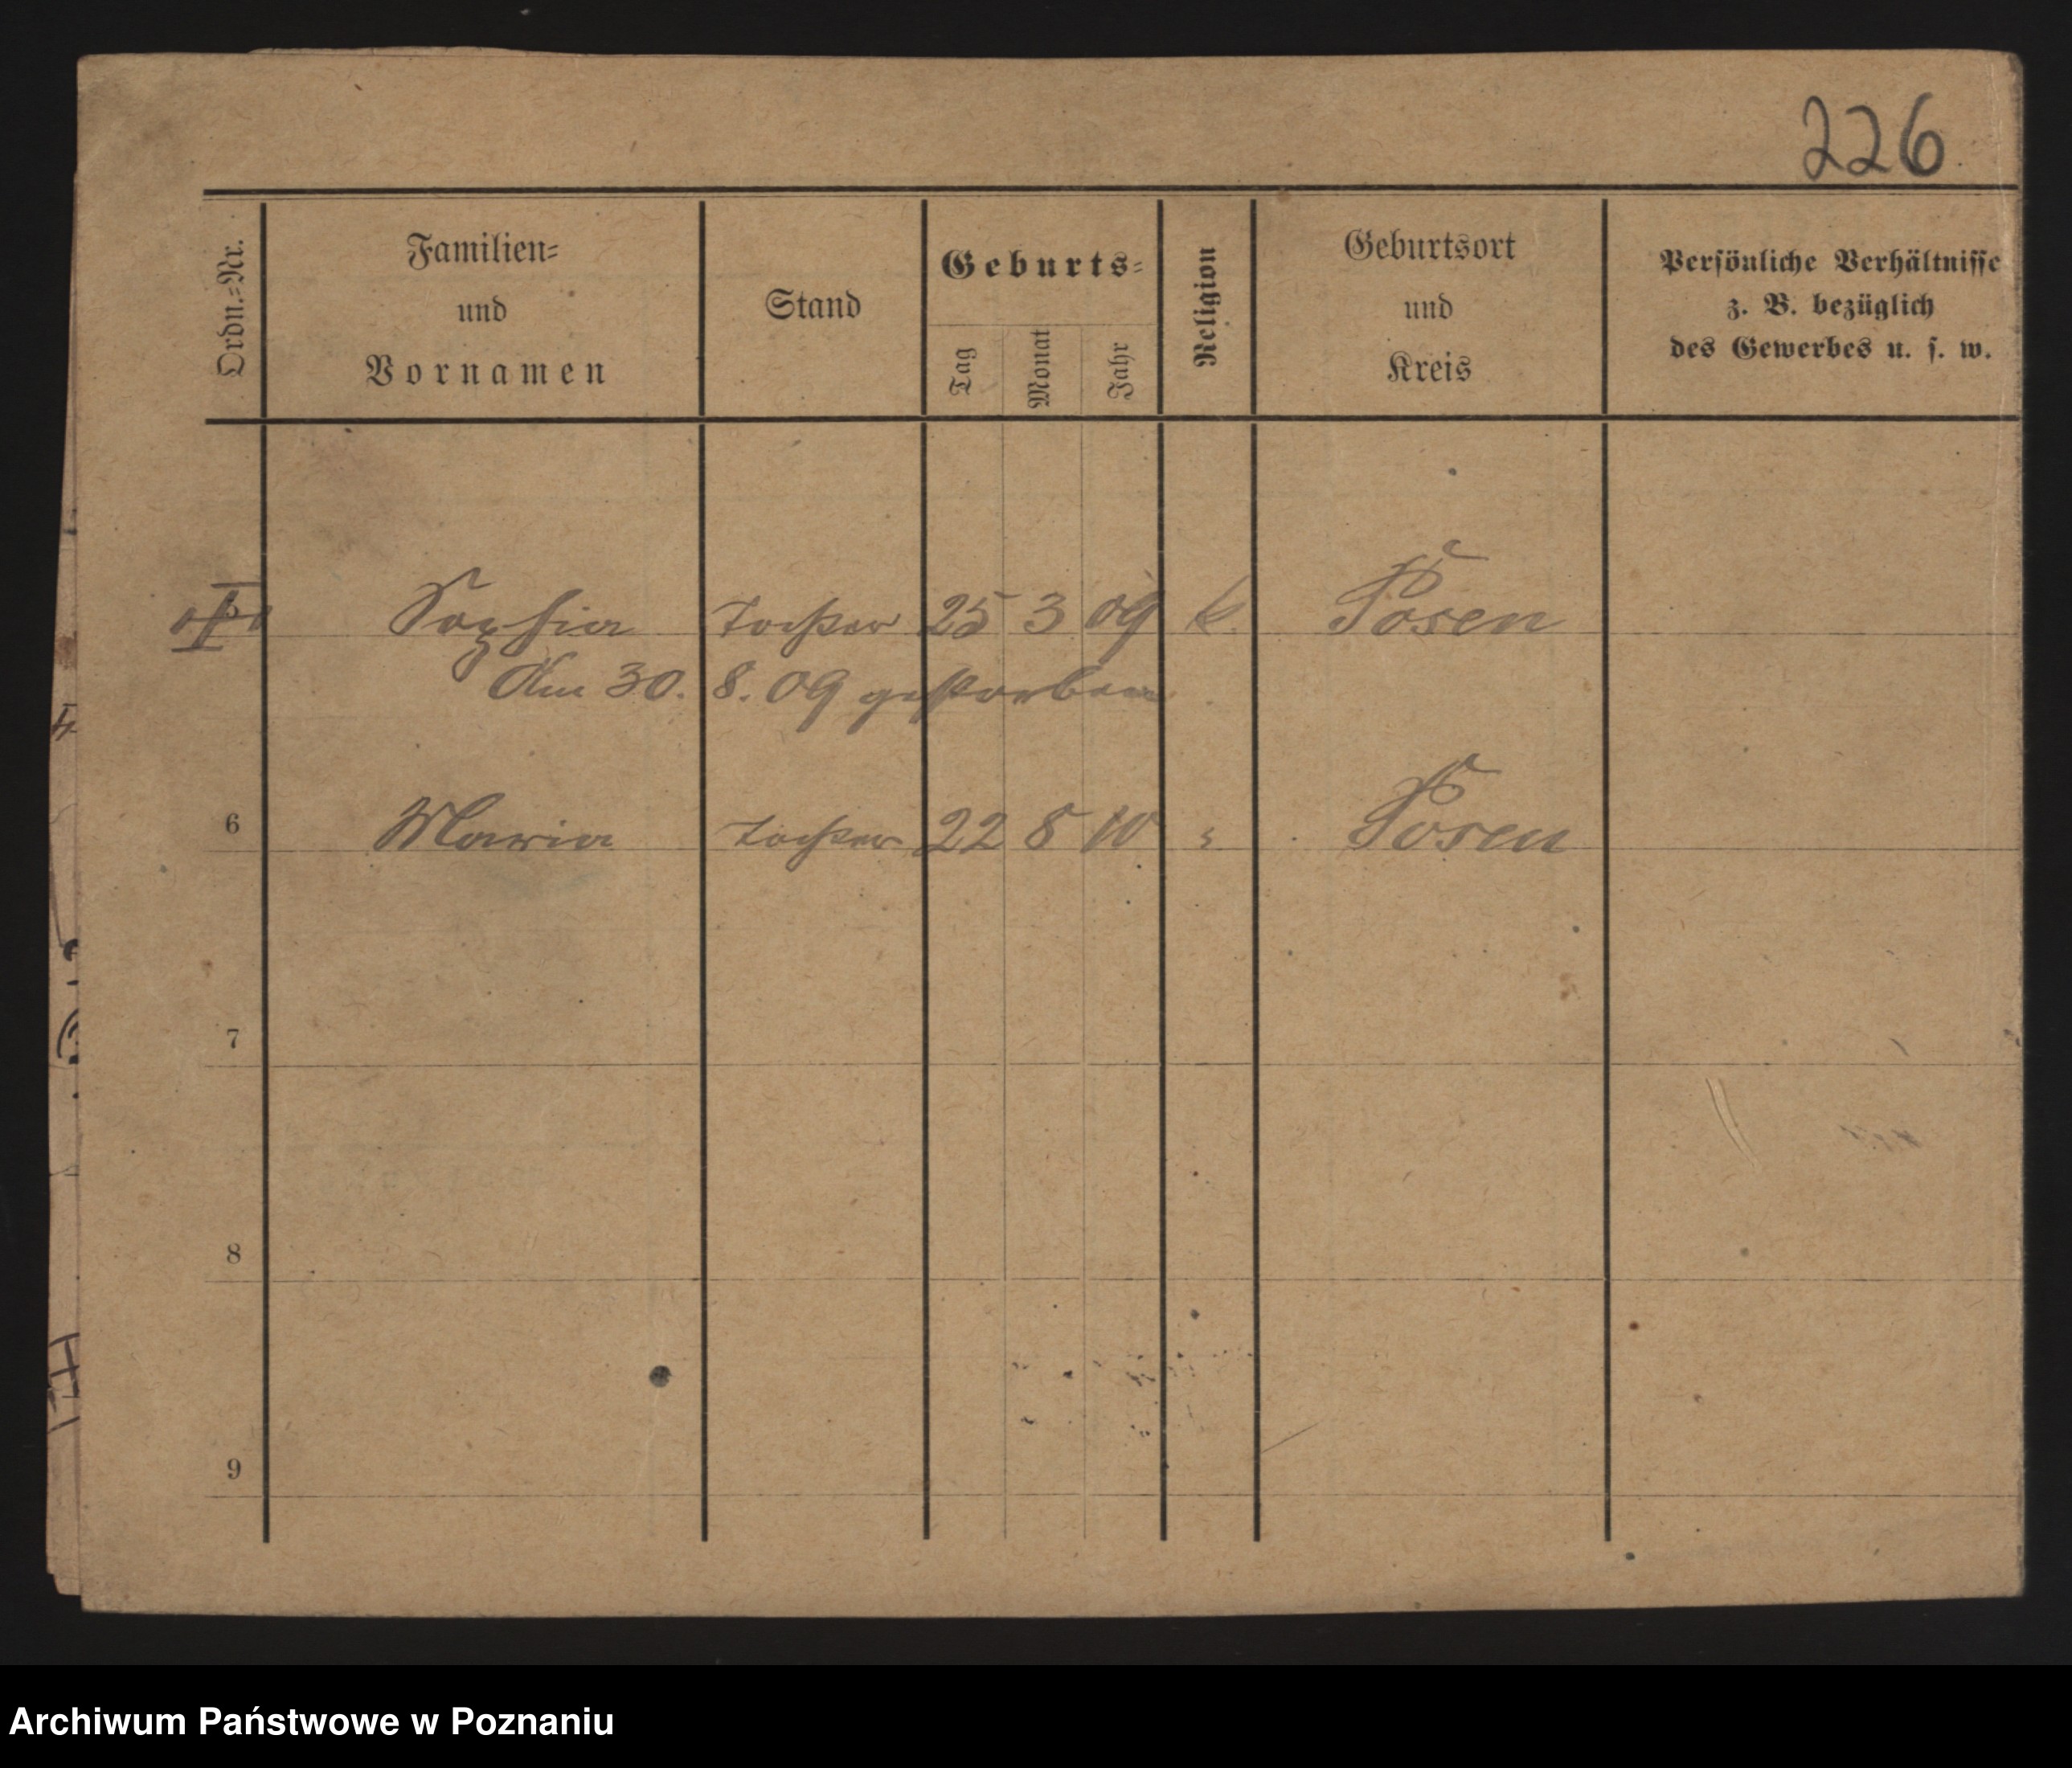 226
Ordn.=Nr.
Familien=
und
Vornamen
Stand
Geburts=
Tag
Monat
Jahr
Religion
Geburtsort
und
Kreis
Persönliche Verhältnisse
z. B. bezüglich
des Gewerbes u. s. w.
Sophia Tochter 25 3 09 k. Posen
Am 30. 8. 09 gestorben
6 Maria Tochter 22 8 10 " Posen
7
8
9
Archiwum Państwowe w Poznaniu